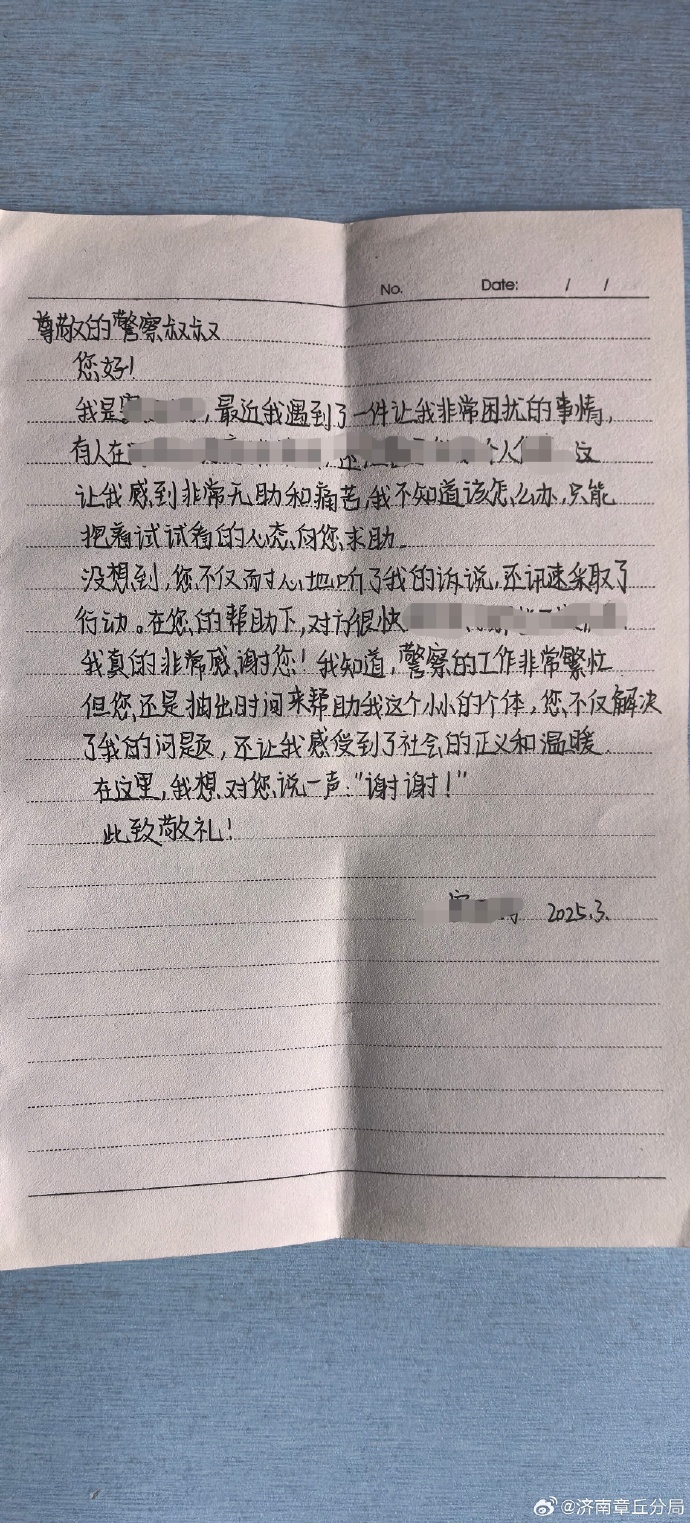 No. Date: / /
尊敬的警察叔叔
您好!
我是 ,最近我遇到了一件让我非常困扰的事情,
有人在 人 这
让我感到非常无助和痛苦,我不知道该怎么办,只能
把着试试看的心态,向您求助.
没想到,您不仅耐心地听了我的诉说,还讯速采取了
行动。在您的帮助下,对方很快
我真的非常感谢您!我知道,警察的工作非常繁忙
但您还是抽出时间来帮助我这个小小的个体,您不仅解决
了我的问题,还让我感受到了社会的正义和温暖.
在这里,我想对您说一声:"谢谢!"
此致敬礼!
2025.3.
@济南章丘分局